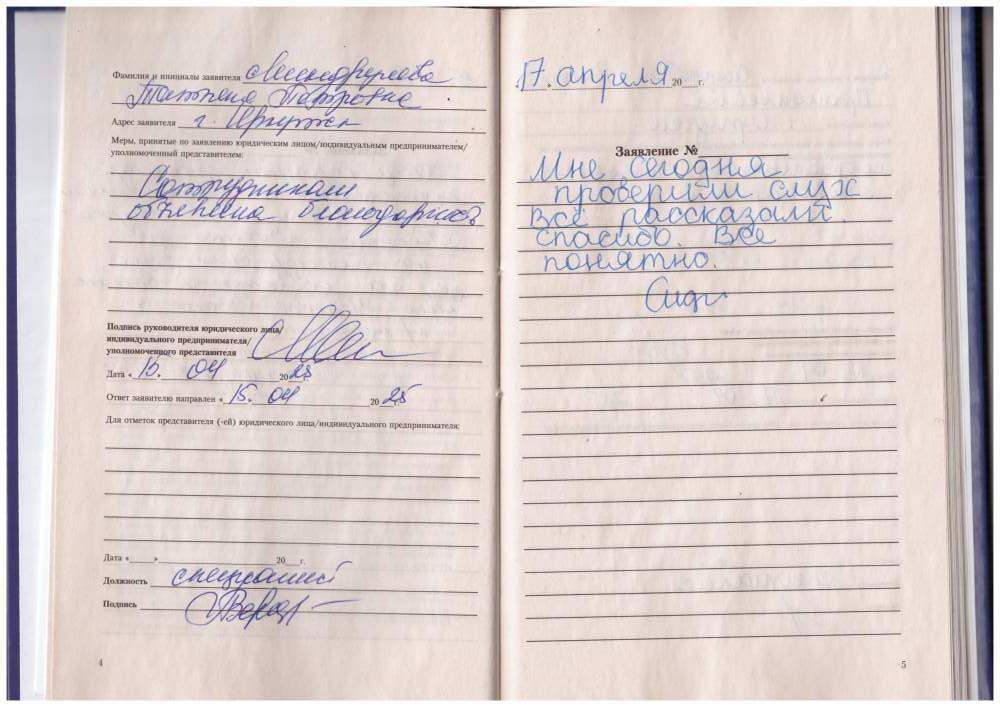 Фамилия и инициалы заявителя
Татьяна Петровна
Адрес заявителя г. Иркутск
Меры, принятые по заявлению юридическим лицом/индивидуальным предпринимателем/
уполномоченный представителем:
Сотрудникам
объявлена благодарность
Подпись руководителя юридического лица/
индивидуального предпринимателя/
уполномоченного представителя
Дата « 15. 04 20 25
Ответ заявителю направлен « 15. 04 20 25 г.
Для отметок представителя (-ей) юридического лица/индивидуального предпринимателя:
Дата «____»____________20___г.
Должность специалист
Подпись
4
17. апреля 20___г.
Заявление №
Мне сегодня
проверили слух
Всё рассказали.
спасибо. Всё
понятно.
5